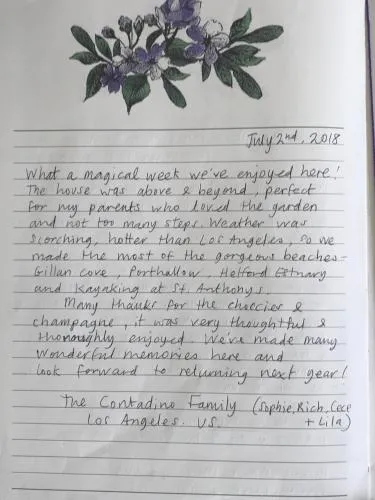 July 2nd, 2018
What a magical week we've enjoyed here!
The house was above & beyond, perfect
for my parents who loved the garden
and not too many steps. Weather was
scorching, hotter than Los Angeles, so we
made the most of the gorgeous beaches-
Gillan Cove, Porthallow, Helford Estuary
and Kayaking at St. Anthonys.
Many thanks for the choccies &
champagne, it was very thoughtful &
thoroughly enjoyed. We've made many
wonderful memories here and
look forward to returning next year!
The Contadino Family (Sophie, Rich, Cece
Los Angeles. US. + Lila)